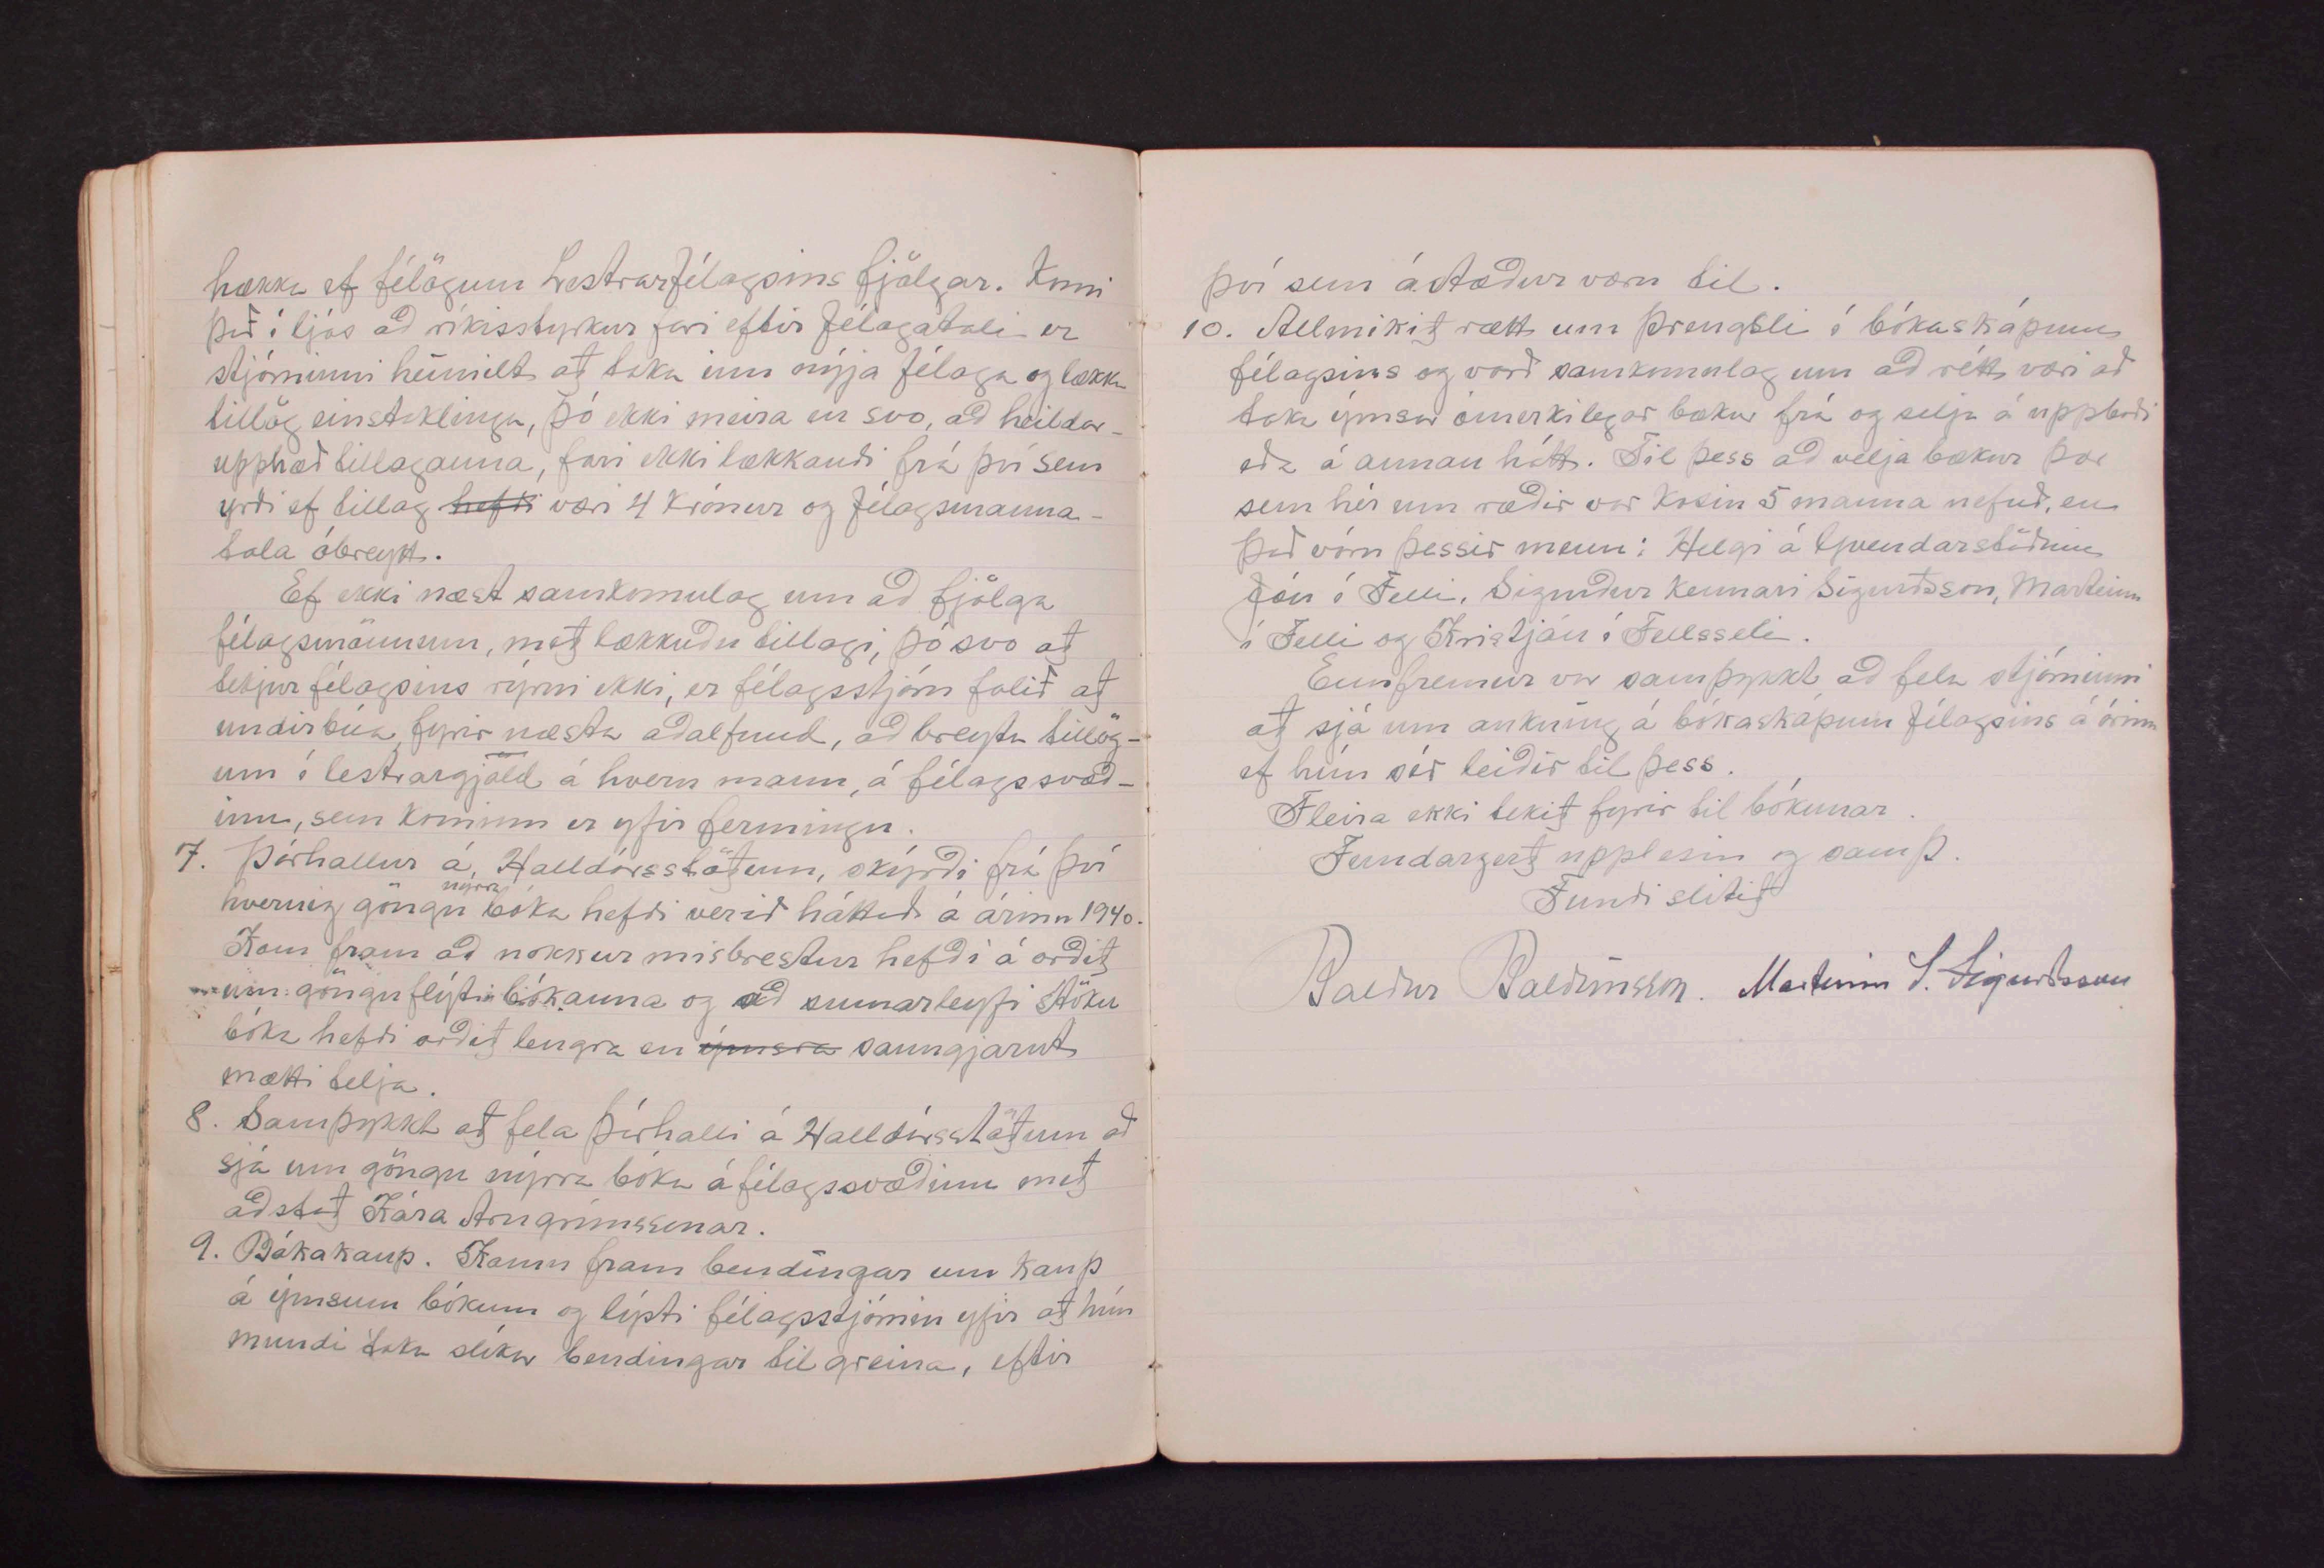 hækka ef félögum Lestrarfélagsins fjölgar. Komi
það í ljós að ríkisstyrkur fari eftir félagatali er
stjórninni heimilt að taka inn nýja félaga og lækka
tillög einstaklinga, þó ekki meira en svo, að heildar-
upphæð tillaganna, fari ekki lækkandi frá því sem
yrði ef tillag hefði væri 4 krónur og félagsmanna-
tala óbreytt.
Ef ekki næst samkomulag um að fjölga
félagsmönnum, með lækkuðu tillagi, þó svo að
tekjur félagsins rýrni ekki, er félagsstjórn falið að
undirbúa fyrir næsta aðalfund, að breyta tillög-
um í lestrargjald á hvern mann, á félagssvæð-
inu, sem kominn er yfir fermingu.
7. Þórhallur á Halldórsstöðum, skýrði frá því
hvernig göngu nýrra bóka hefði verið háttað á árinu 1940.
Kom fram að nokkur misbrestur hefði á orðið
um gönguflýti bókanna og að sumarleyfi stöku
bóka hefði orðið lengra en ýmsra sanngjarnt
mætti telja.
8. Samþykkt að fela Þórhalli á Halldórsstöðum að
sjá um göngu nýrra bóka á félagssvæðinu með
aðstoð Kára Arngrímssonar.
9. Bókakaup. Komu fram bendingar um kaup
á ýmsum bókum og lýsti félagsstjórnin yfir að hún
mundi taka slíkar bendingar til greina, eftir
því sem ástæður væru til.
10. Allmikið rætt um þrengsli í bókaskápum
félagsins og varð samkomulag um að rétt væri að
taka ýmsar ómerkilegar bækur frá og selja á uppboði
eða á annan hátt. Til þess að velja bækur þær
sem hér um ræðir var kosin 5 manna nefnd, en
það vóru þessir menn: Helgi á Gvendarstöðum
Jón í Felli, Sigurður kennari Sigurðsson, Marteinn
í Felli og Kristján í Fellsseli.
Ennfremur var samþykkt að fela stjórninni
að sjá um aukning á bókaskápum félagsins á árinu
ef hún sér leiðir til þess.
Fleira ekki tekið fyrir til bókunar.
Fundargerð upplesin og samþ.
Fundi slitið
Baldur Baldvinsson. Marteinn S. Sigurðsson